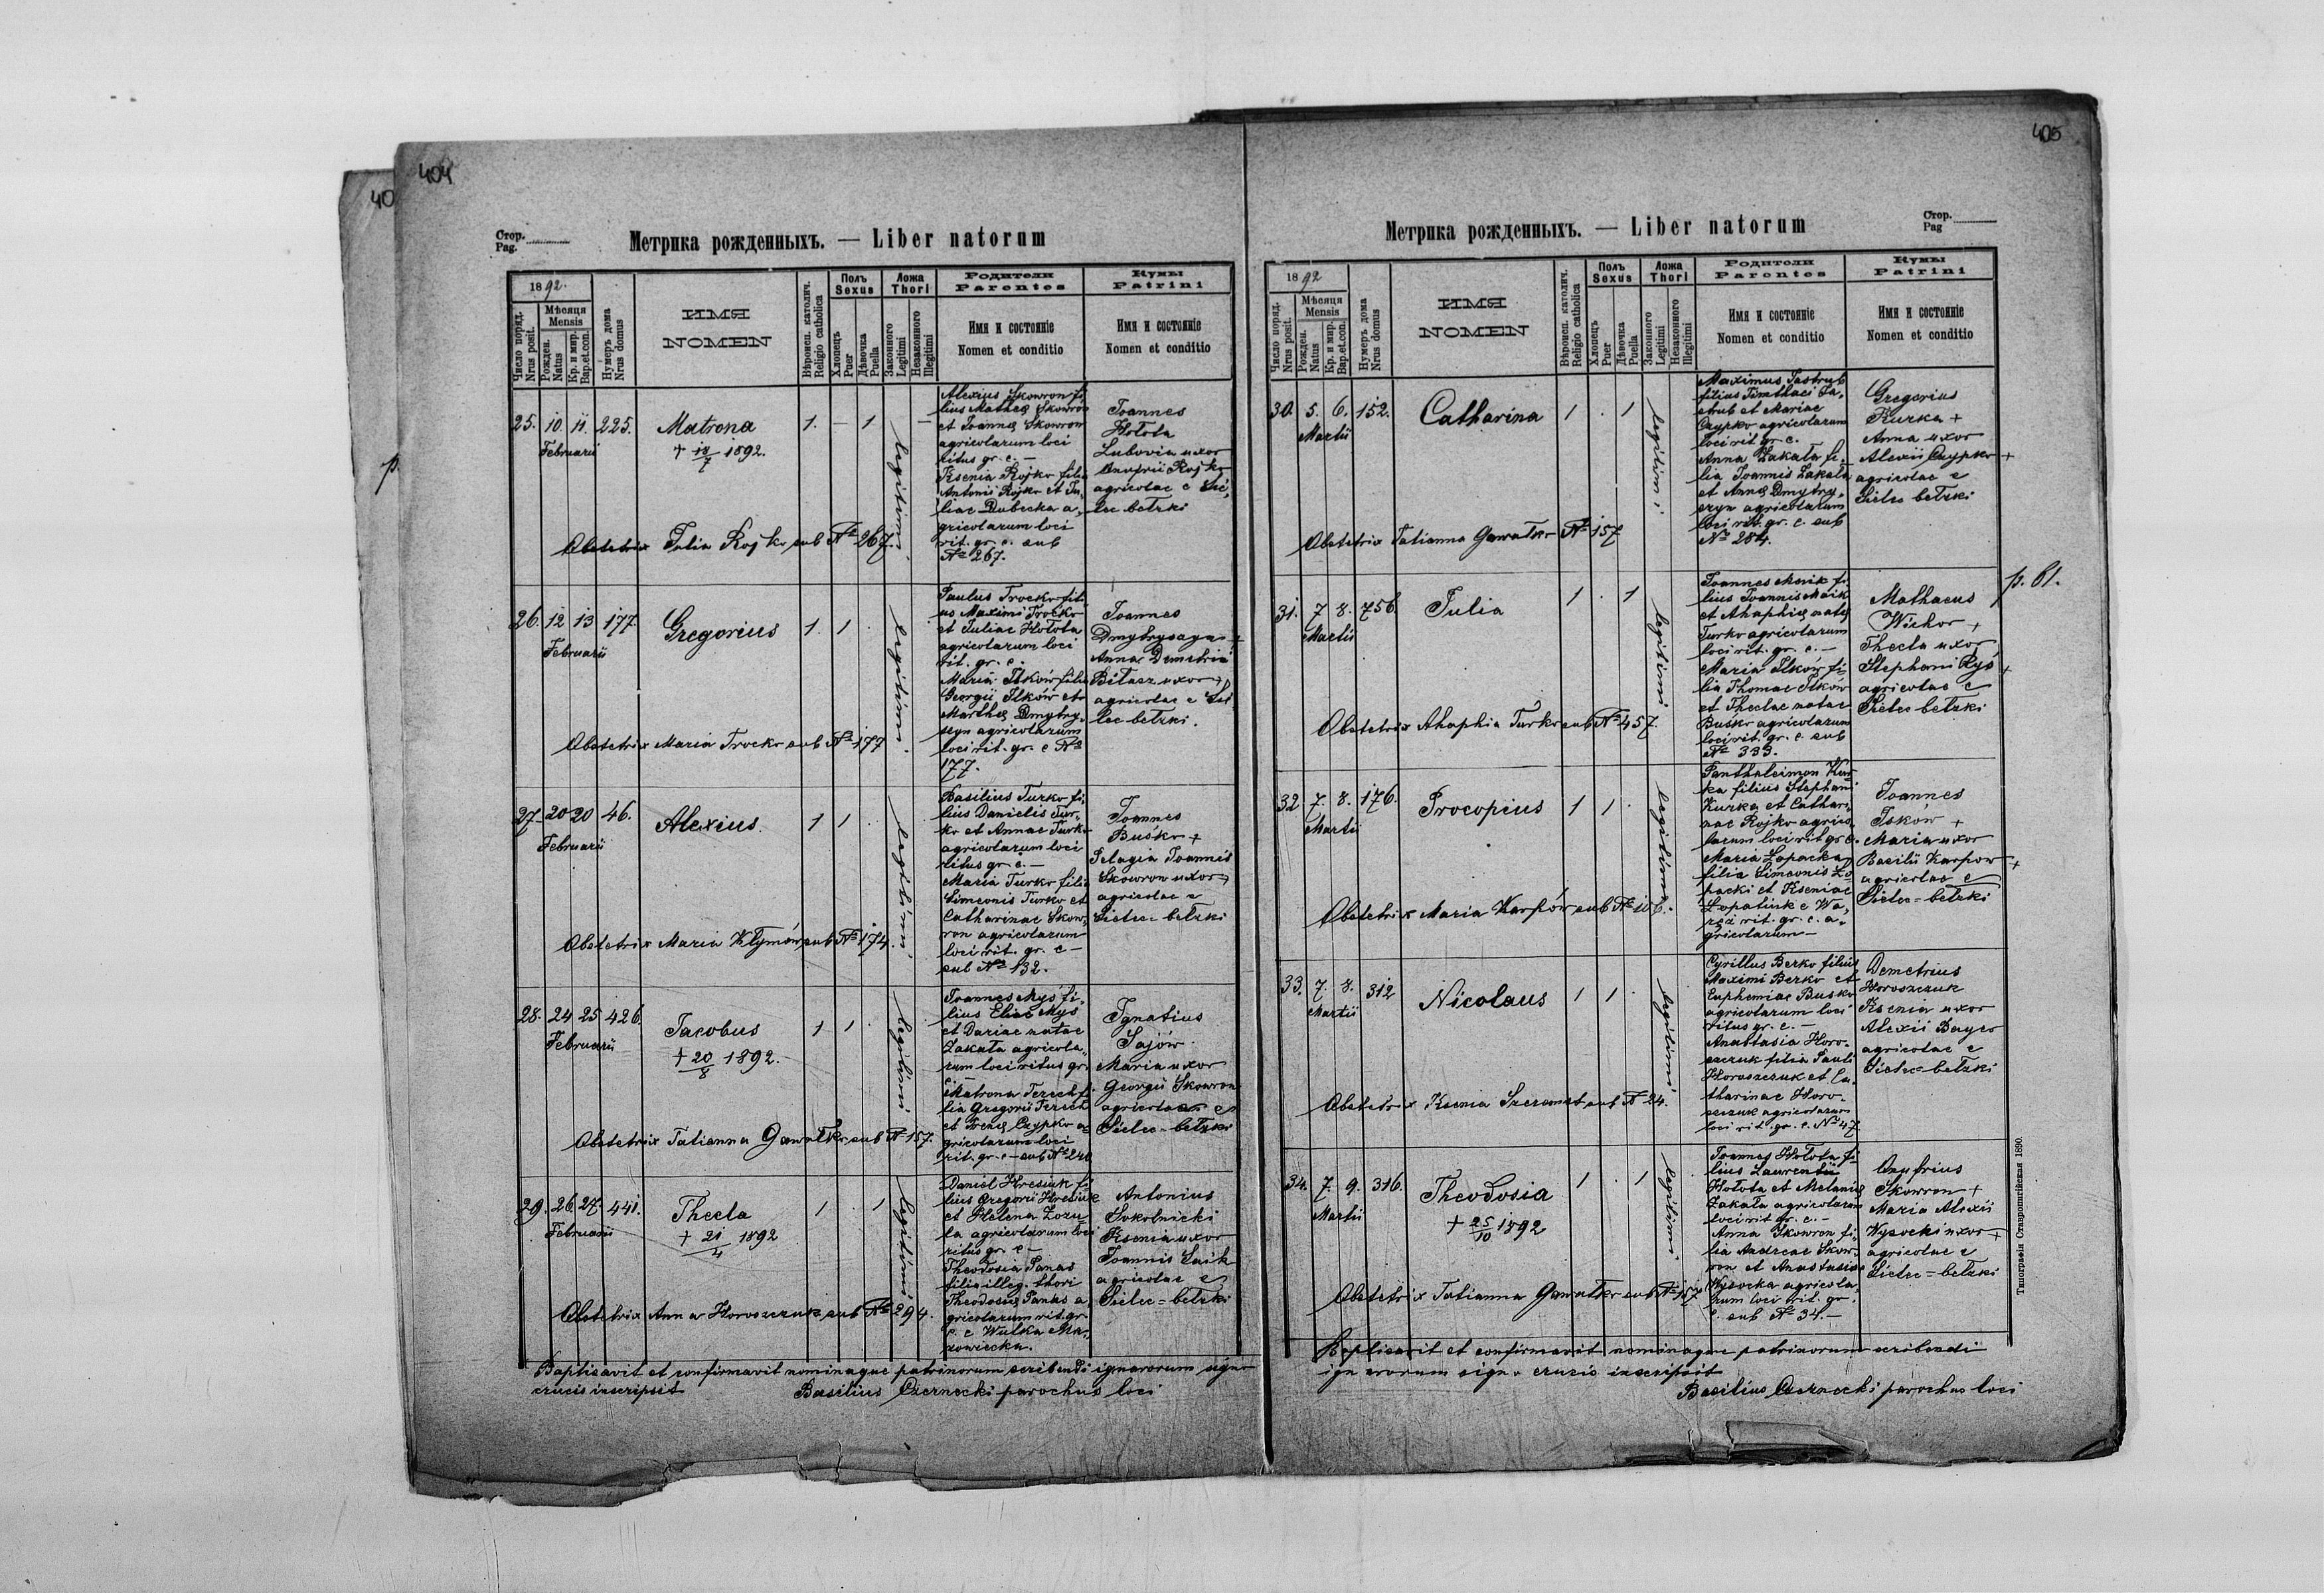 404
40
p.
Стор.
Pag.
Метрика рожденныхъ. — Liber natorum
1892.
Число поряд.
Nrus posit.
Мѣсяця
Mensis
Рожден.
Natus
Кр. и мир.
Bap.et.con.
Нумеръ дома
Nrus domus
ИМЯ
NOMEN
Вѣроисп. католич.
Religio catholica
Полъ
Sexus
Хлопецъ
Puer
Дѣвочка
Puella
Ложа
Thori
Законного
Legitimi
Незаконного
Illegitimi
Родители
Parentes
Имя и состояніе
Nomen et conditio
Кумы
Patrini
Имя и состояніе
Nomen et conditio
25. 10. 11. 225.
Februarii
Matrona
+ 18/7 1892.
1. — 1 —
legitimi
Alexius Skowron fi-
lius Mathes Skowron
et Joannes Skowron
agricolarum loci
ritus gr. c. —
Ksenia Rojko filia
Antonii Rojko et Ju-
liae Dubecka a-
gricolarum loci
rit. gr. c. sub
№ 267.
Joannes
Hołota
Lubovia uxor
Onufrii Rojko
agricolae e Sie-
lec bełzki
Obstetrix Julia Rojko sub № 267.
26. 12 13 177.
Februarii
Gregorius
1. 1
legitimi
Paulus Trocko fili-
us Maximi Trocko
et Juliae Hołota
agricolarum loci
rit. gr. c.
Maria Ilków filia
Georgii Ilków et
Marthes Dmytry-
szyn agricolarum
loci rit. gr. c №
177.
Joannes
Anna Demetrii
uxor +
agricolae e Sie-
lec bełzki.
Obstetrix Maria Trocko sub № 177
27. 20 20 46.
Februarii
Alexius.
1 1
legitimi
Basilius Turko fi-
lius Danielis Tur-
ko et Annae Turko
agricolarum loci
ritus gr. c. —
Maria Turko filia
Simeonis Turko et
Catharinae Skow-
ron agricolarum
loci rit. gr. c —
sub № 132.
Joannes
Buśko +
Pelagia Joannis
Skowron uxor +
agricolae e
Sielec = bełzki
Obstetrix Maria Kłymów sub № 174.
28. 24 25 426.
Februarii
Jacobus
+ 20/8 1892.
1 1
legitimi
Joannes Myś fi-
lius Eliae Myś
et Dariae natae
Zakała agricola-
rum loci ritus gr.
c. —
Matrona Terech fi-
lia Gregorii Terech
et Irenes Czypko a-
gricolarum loci
rit. gr. c — sub № 240
Ignatius
Sajów.
Maria uxor
Georgii Skowron
agricolae e
Sielec = bełzki
Obstetrix Tatianna Gawałko sub № 157.
29. 26. 27. 441.
Februarii
Thecla
+ 21/4 1892
1 . 1
legitimi
Daniel Hresiuk fi-
lius Gregorii Hresiuk
et Helena Zozu-
la agricolarum loci
ritus gr. c —
Theodosia Panas
filia illeg. thori
Theodosies Panas a-
gricolarum rit. gr.
c. e Wulka Ma-
zowiecka.
Antonius
Sokolnicki
Ksenia uxor
Joannis Laik
agricolae e
Sielec = bełzki
Obstetrix Anna Horoszczuk sub № 294.
Baptisavit et confirmavit nominaque patrinorum scribendi ignarorum signo
crucis inscripsit
Basilius Czernecki parochus loci
405
Метрика рожденныхъ. — Liber natorum
Стор.
Pag
1892
Число поряд.
Nrus posit.
Мѣсяця
Mensis
Рожден.
Natus
Кр. и мир.
Bap.et.con.
Нумеръ дома
Nrus domus
ИМЯ
NOMEN
Вѣроисп. католич.
Religio catholica
Полъ
Sexus
Хлопецъ
Puer
Дѣвочка
Puella
Ложа
Thori
Законного
Legitimi
Незаконного
Illegitimi
Родители
Parentes
Имя и состояніе
Nomen et conditio
Кумы
Patrini
Имя и состояніе
Nomen et conditio
30. 5. 6. 152.
Martii
Catharina
1 . 1
legitimi
Maximus Jastrub
filius Timothaei Ja-
strub et Mariae
Czypko agricolarum
loci rit gr. c.
Anna Zakała fi-
lia Joannis Zakała
et Annes Dmytry-
szyn agricolarum
loci rit. gr. c. sub
№ 284.
Gregorius
Kurka +
Anna uxor
Alexii Czypko +
agricolae e
Sielec bełzki
Obstetrix Tatianna Gawałko № 157
31. 7 8. 756.
Martii
Julia
1 . 1
legitimi
Joannes Maik fi-
lius Joannis Maik
et Ahaphies natae
Turko agricolarum
loci rit. gr. c. —
Maria Ilków fi-
lia Thomae Ilków
et Theclae natae
Buśko agricolarum
loci rit. gr. c. sub
№ 333.
Mathaeus
Wichor +
Thecla uxor
Stephani Ryś +
agricolae e
Sielec bełzki
p. 61.
Obstetrix Ahaphia Turko sub № 457.
32 7. 8. 176.
Martii
Procopius
1 1
legitimi
Panthaleimon Kur-
ka filius Stephani
Kurka et Cathari-
nae Rojko agrico-
larum loci rit gr c.
Maria Łopacka
filia Simeonis Ło-
packi et Kseniae
Łopatiuk e Wa-
ręż rit. gr. c. a-
gricolarum —
Joannes
Iśków +
Maria uxor
Basilii Karpow +
agricolae e
Sielec = bełzki
Obstetrix Maria Karpów sub № 106.
33. 7. 8. 312
Martii
Nicolaus
1 1
legitimi
Cyrillus Berko filius
Maximi Berko et
Euphemiae Buśko
agricolarum loci
ritus gr. c. —
Anastasia Horo-
szczuk filia Pauli
Horoszczuk et Ca-
tharinae Horo-
szczuk agricolarum
loci rit. gr. c. № 47.
Demetrius
Horoszczuk
Ksenia uxor
Alexii Bayer
agricolae e
Sielec = bełzki
Obstetrix Ksenia Szeremet sub № 24.
34. 7. 9. 316.
Martii
Theodosia
+ 25/10 1892
1 . 1
legitimi
Joannes Hołota fi-
lius Laurentii
Hołota et Melanies
Zakała agricolarum
loci rit gr. c. —
Anna Skowron fi-
lia Andreae Skow-
ron et Anastasiae
Wysocka agricola-
rum loci rit. gr.
c. sub № 34. —
Onufrius
Skowron +
Maria Alexii
Wysocki uxor +
agricolae e
Sielec = bełzki
Obstetrix Tatianna Gawałko sub № 157
Baptisavit et confirmavit nominaque patrinorum scribendi
ignarorum signo crucis inscripsit
Basilius Czernecki parochus loci
Типографія Ставропигійская 1890.